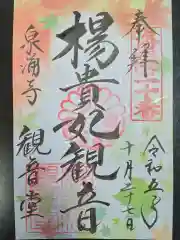 奉拝
令和五年
十月二十七日
楊貴妃観音
泉涌寺
観音堂